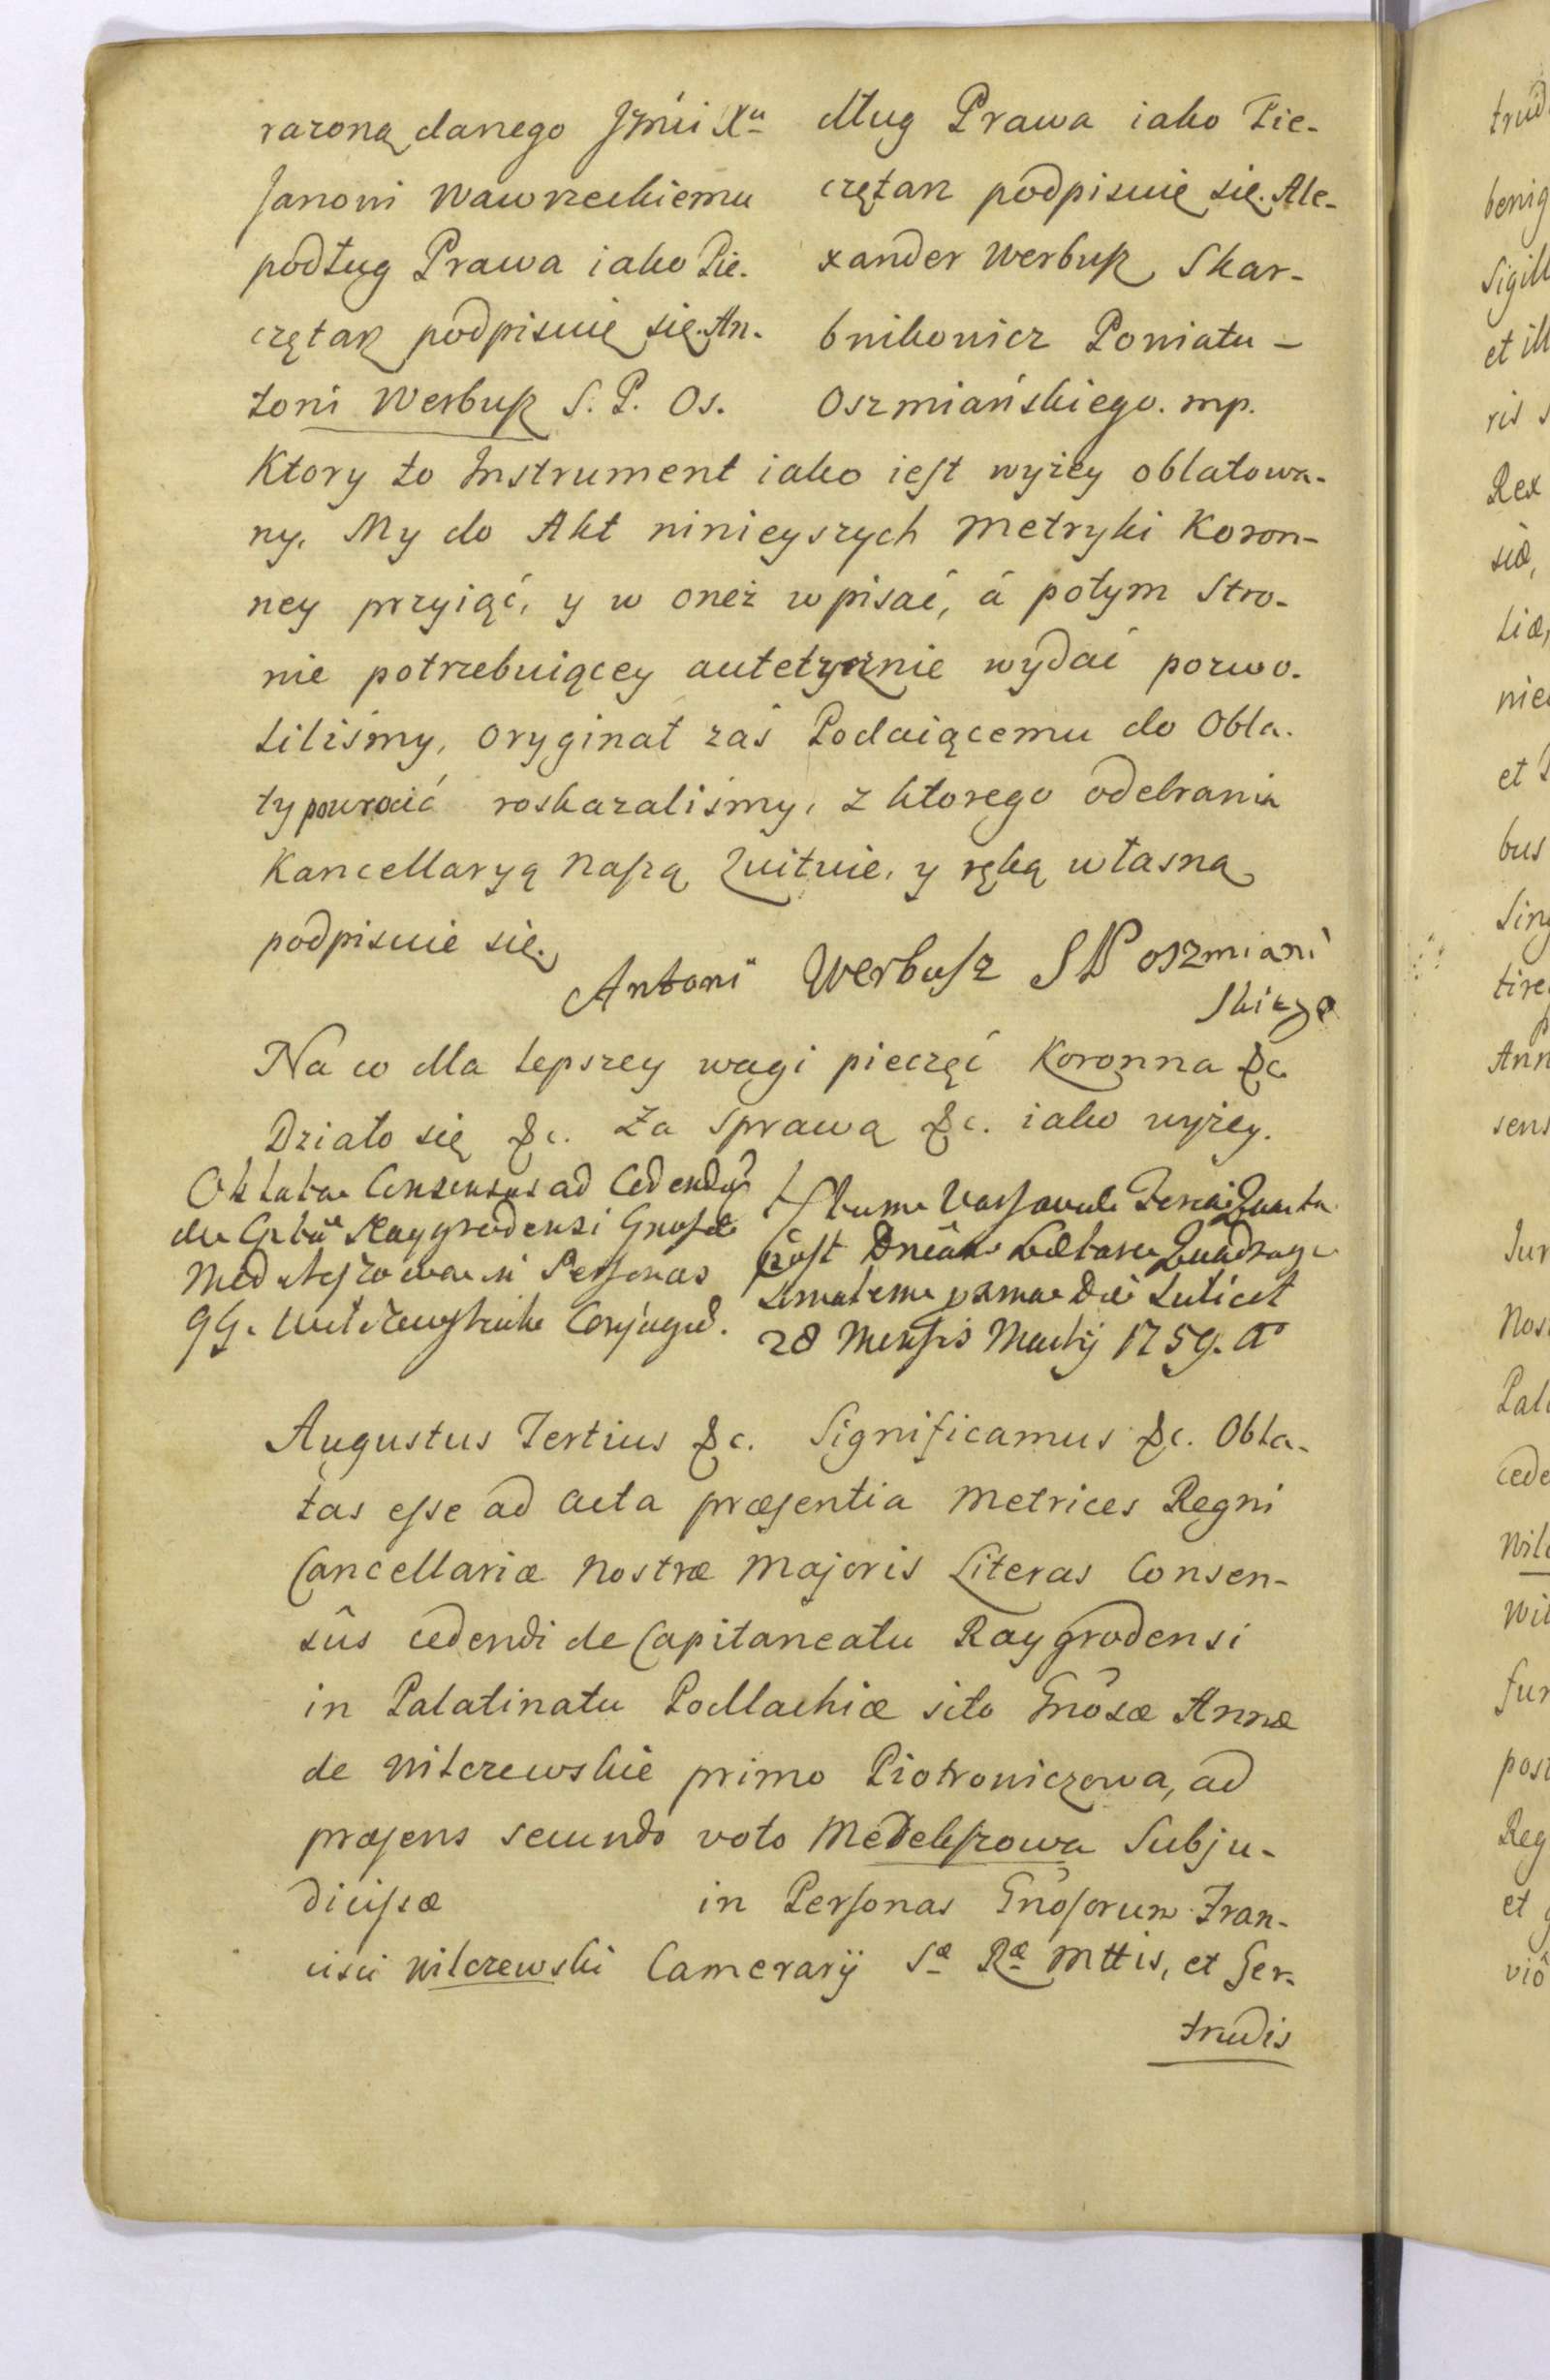 razoną danego Jzmći Xu
Janowi Wawrzeckiemu
podług Prawa iako Pie-
czętarz podpisuię się. An-
toni Werbusz S. P. Os.
dług Prawa iako Pie-
czętarz podpisuię się. Ale-
xander Werbusz Skar-
bnikowicz Powiatu
Oszmiańskiego. mp.
Ktory to Instrument iako iest wyżey oblatowa-
ny, My do Akt ninieyszych Metryki Koron-
ney przyiąć, y w oneż wpisać, á potym Stro-
nie potrzebuiącey autetycznie wydać pozwo-
liliśmy, Oryginał zaś Podaiącemu do Obla-
ty powrocić roskazaliśmy, z ktorego odebrania
Kancellaryą Naszą Quituie, y ręką własną
podpisuie się.
Antoni Werbusz SP Oszmiań
skiego
Na co dla lepszey wagi pieczęć Koronna &c.
Działo się &c. Za sprawą &c. iako wyżey.
Oblatae Consensus ad Cedendū
de Capitū Raygrodensi Gnosae
Medekszowa in Personas
GG. Wilczewskich Conjugū.
Actum Varsaviae Feria Quarta
post Dnicam Laetare Quadrage
simalem proxima Die scilicet
28 Mensis Martij 1759. Ao
Augustus Tertius &c. Significamus &c. Obla-
tas esse ad Acta praesentia Metrices Regni
Cancellariæ Nostræ Majoris Literas Consen-
sûs cedendi de Capitaneatu Raygrodensi
in Palatinatu Podlachiæ sito Gnosæ Annæ
de Wilczewskie primo Piotrowiczowa, ad
præsens secundo voto Medekszowa Subju-
dicissæ in Personas Gnosorum Fran-
cisci Wilczewski Camerarij Sæ Ræ Mttis, et Ger-
trudis